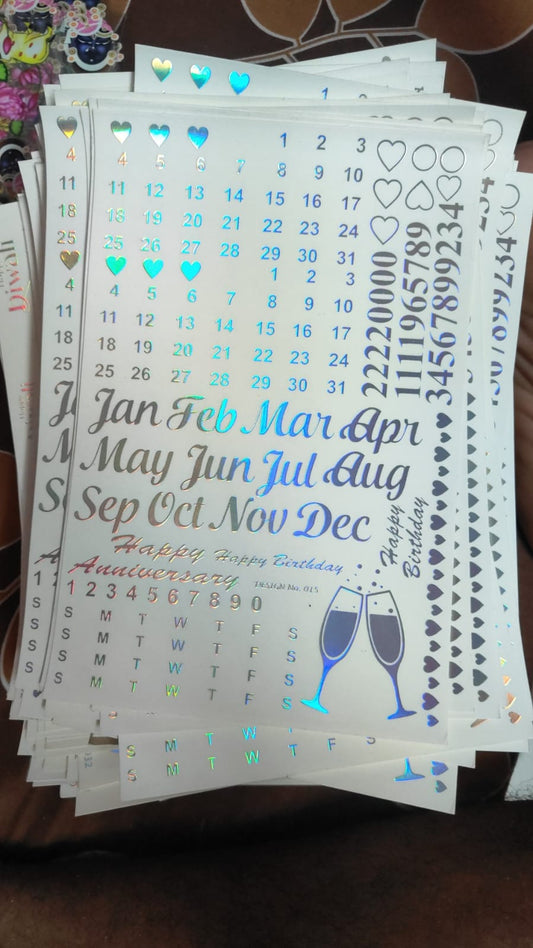 1 2 3
4 5 6 7 8 9 10
11 12 13 14 15 16 17
18 19 20 21 22 23 24
25 26 27 28 29 30 31
1 2 3
4 5 6 7 8 9 10
11 12 13 14 15 16 17
18 19 20 21 22 23 24
25 26 27 28 29 30 31
22220000
1111965789
34567899234
Jan Feb Mar Apr
May Jun Jul Aug
Sep Oct Nov Dec
Happy
Anniversary
Happy Birthday
DESIGN No. 015
Happy
Birthday
1 2 3 4 5 6 7 8 9 0
S M T W T F S
S M T W T F S
S M T W T F S
S M T W T F S
4
11
18
25
4
11
18
25
1
S
S
S
S
W
S M T W T F S
S M T W
Diwali